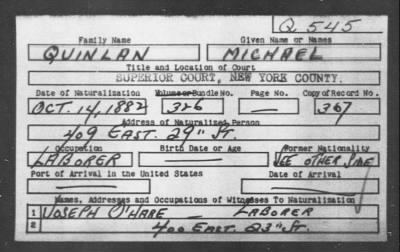 Q. 545
Family Name Given Name or Names
QUINLAN MICHAEL
Title and Location of Court
SUPERIOR COURT, NEW YORK COUNTY.
Date of Naturalization Volume or Bundle No. Page No. Copy of Record No.
OCT. 14, 1882 326 — 367
Address of Naturalized Person
409 EAST. 29" ST.
Occupation Birth Date or Age Former Nationality
LABORER — SEE OTHER SIDE
Port of Arrival in the United States Date of Arrival
— —
Names, Addresses and Occupations of Witnesses To Naturalization
1 JOSEPH O'HARE — LABORER
2 400 EAST. 23" ST.